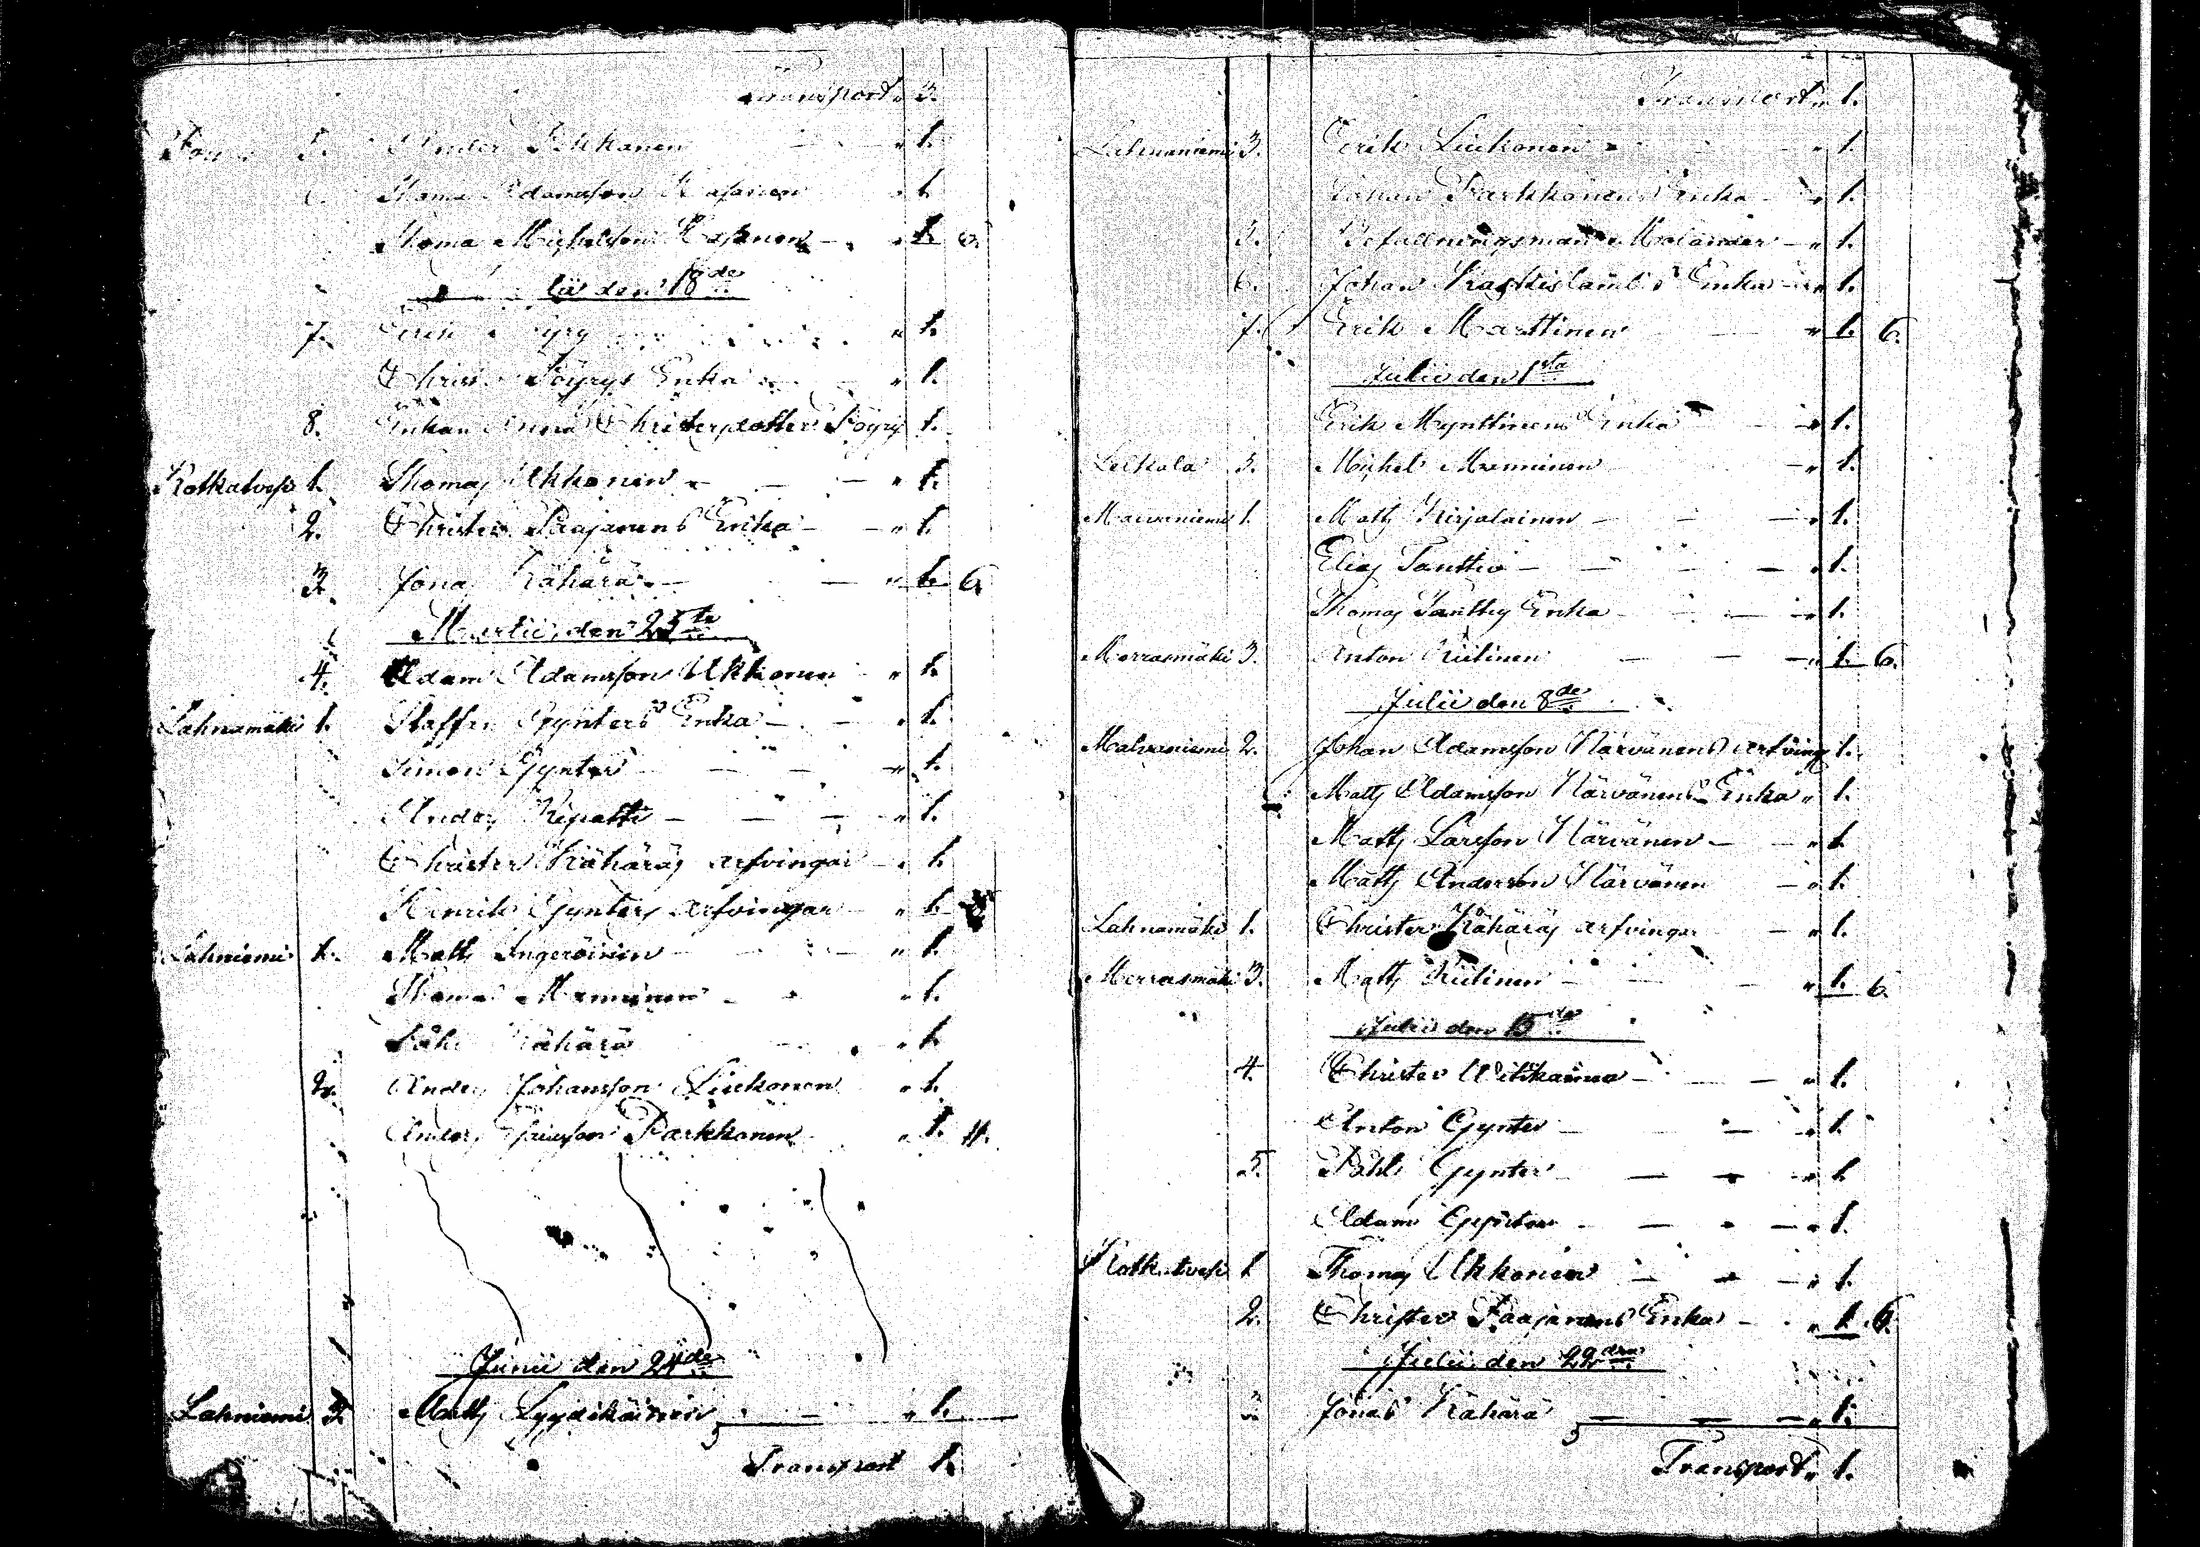 Transport " 3.
5. Pekkanen " 1.
Thomas Adamsson " 1.
Thomas Michelsson " 1. 6.
den 18de
7. Erik " 1.
Christ Pöyrys Enka " 1.
8. Enkan Anna Christersdotter Pöyry 1.
Kotkatvesi 1. Thomas Ukkonen — " 1.
2. Christer Paajanens Enka — " 1.
3. Jonas Kähärä — " 1. 6.
Martii den 25te
4. Adam Adamsson Ukkonen " 1.
Lahnamäki 1. Staffan Gynters Enka — " 1.
Simon Gynter — " 1.
Anders Repatti — " 1.
Christer Kähäräs arfvingar — " 1.
Henrik Gynters arfvingar — " 1.
Lahniemi 1. Matts Ingeröinen — " 1.
Thomas Manninen — " 1.
Påhl Kähärä " 1.
2. Anders Johansson Liukonen " 1.
Anders Parkkonen " 1. 11.
Junii den 24de
Lahniemi 3. Matts Lyydikäinen — " 1.
Transport 1.
Transport " 1.
Lahnaniemi 3. Erik Liukonen " 1.
Johan Parkkonens Enka " 1.
5. Befallningsman Molander — " 1.
6. Johan Enka " 1.
7. Erik Marttinen — " 1. 6.
Julii den 1sta
Erik Mynttinens Enka — " 1.
Leikola 3. Michel Manninen — " 1.
1. Matts Kirjalainen — " 1.
Elias Tanttu — " 1.
Thomas Tanttus Enka — " 1.
Merrasmäki 3. Anton Kiilinen — " 1. 6.
Julii den 8de
Malvaniemi 2. Johan Adamsson Närvänens arfving 1.
Matts Adamsson Närvänens Enka " 1.
Matts Larsson Närvänen — " 1.
Matts Andersson Närvänen — " 1.
Lahnamäki 1. Christer Kähäräs arfvingar — " 1.
Merrasmäki 3. Matts Kiilinen — " 1. 6.
Julii den 15de
4. Christer — " 1.
Anton Gynter — " 1.
5. Påhl Gynter — " 1.
Adam Gynter — " 1.
Kotkatvesi 1. Thomas Ukkonen — " 1.
2. Christer Paajanens Enka — " 1. 6.
Julii den 22dra
3. Jonas Kähärä — " 1.
Transport " 1.